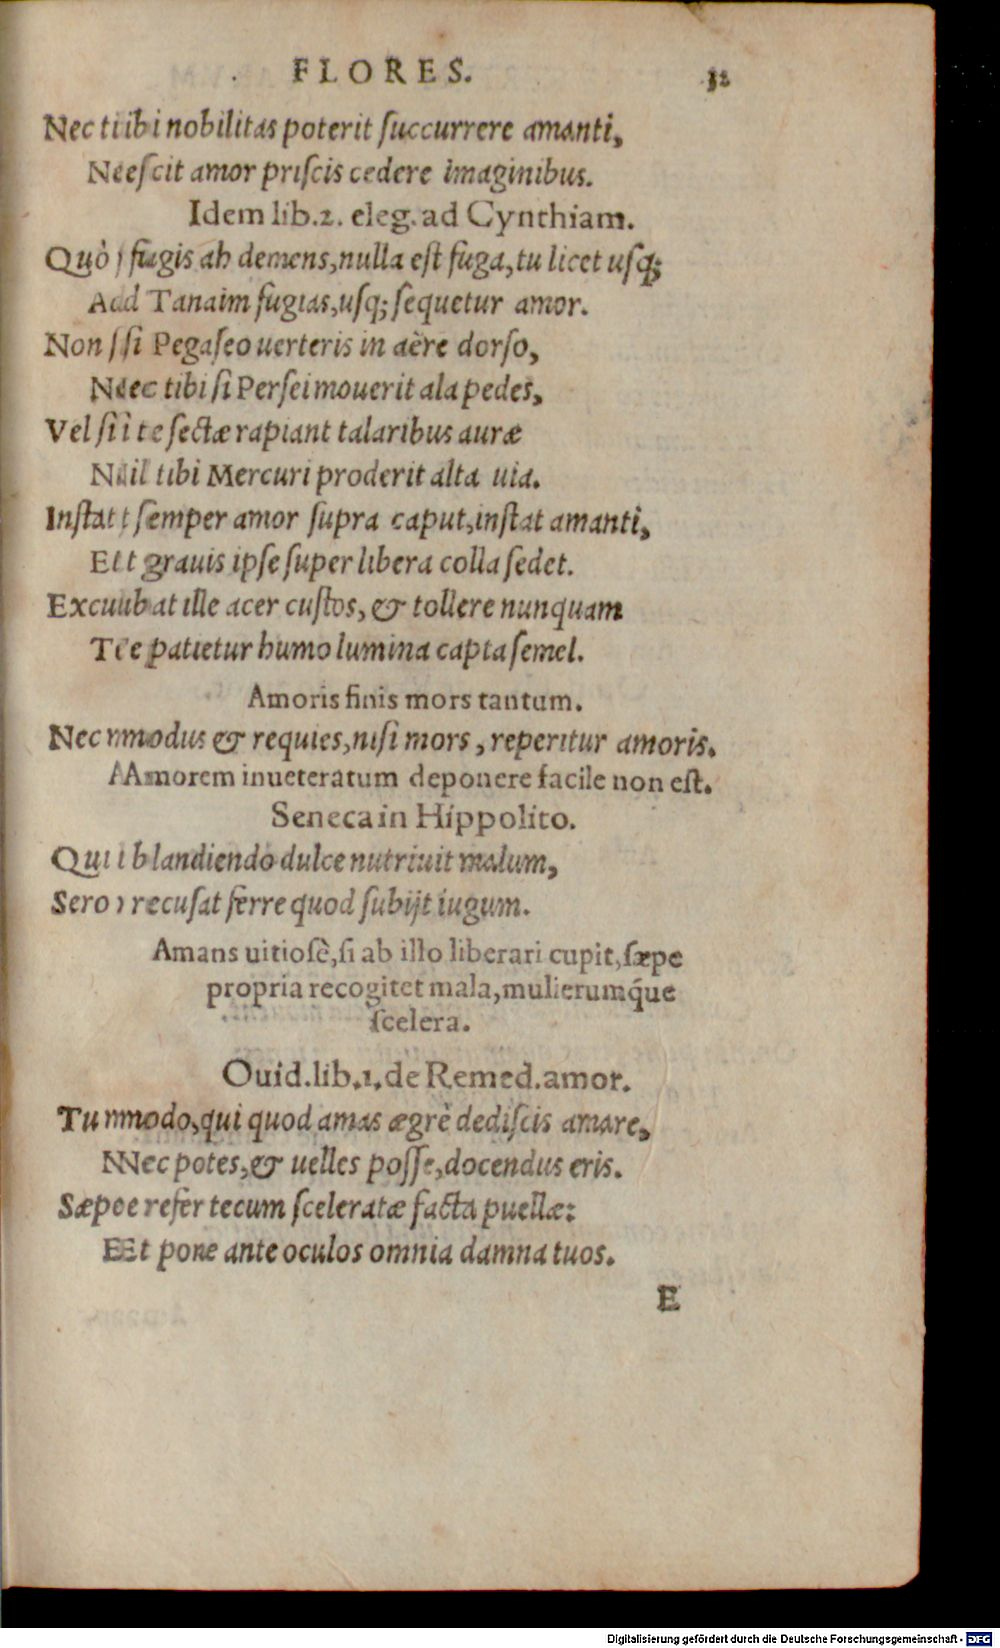 FLORES. 32
Nec tibi nobilitas poterit ſuccurrere amanti,
Neſcit amor priſcis cedere imaginibus.
Idem lib.2. eleg. ad Cynthiam.
Quò fugis ah demens, nulla eſt fuga, tu licet uſq;
Ad Tanaim fugias, uſq; ſequetur amor.
Non ſi Pegaſeo uerteris in aëre dorſo,
Nec tibi ſi Perſei mouerit ala pedes,
Vel ſi te ſectæ rapiant talaribus auræ
Nil tibi Mercuri proderit alta uia.
Inſtat ſemper amor ſupra caput, inſtat amanti,
Et grauis ipſe ſuper libera colla ſedet.
Excubat ille acer cuſtos, & tollere nunquam
Te patietur humo lumina capta ſemel.
Amoris finis mors tantum.
Nec modus & requies, niſi mors, reperitur amoris.
Amorem inueteratum deponere facile non eſt.
Seneca in Hippolito.
Qui blandiendo dulce nutriuit malum,
Sero recuſat ferre quod ſubijt iugum.
Amans uitioſè, ſi ab illo liberari cupit, ſæpe
propria recogitet mala, mulierumq́ue
ſcelera.
Ouid. lib.1. de Remed. amor.
Tu modo, qui quod amas ægrè dediſcis amare,
Nec potes, & uelles poſſe, docendus eris.
Sæpe refer tecum ſceleratæ facta puellæ:
Et pone ante oculos omnia damna tuos.
E
Digitalisierung gefördert durch die Deutsche Forschungsgemeinschaft - DFG